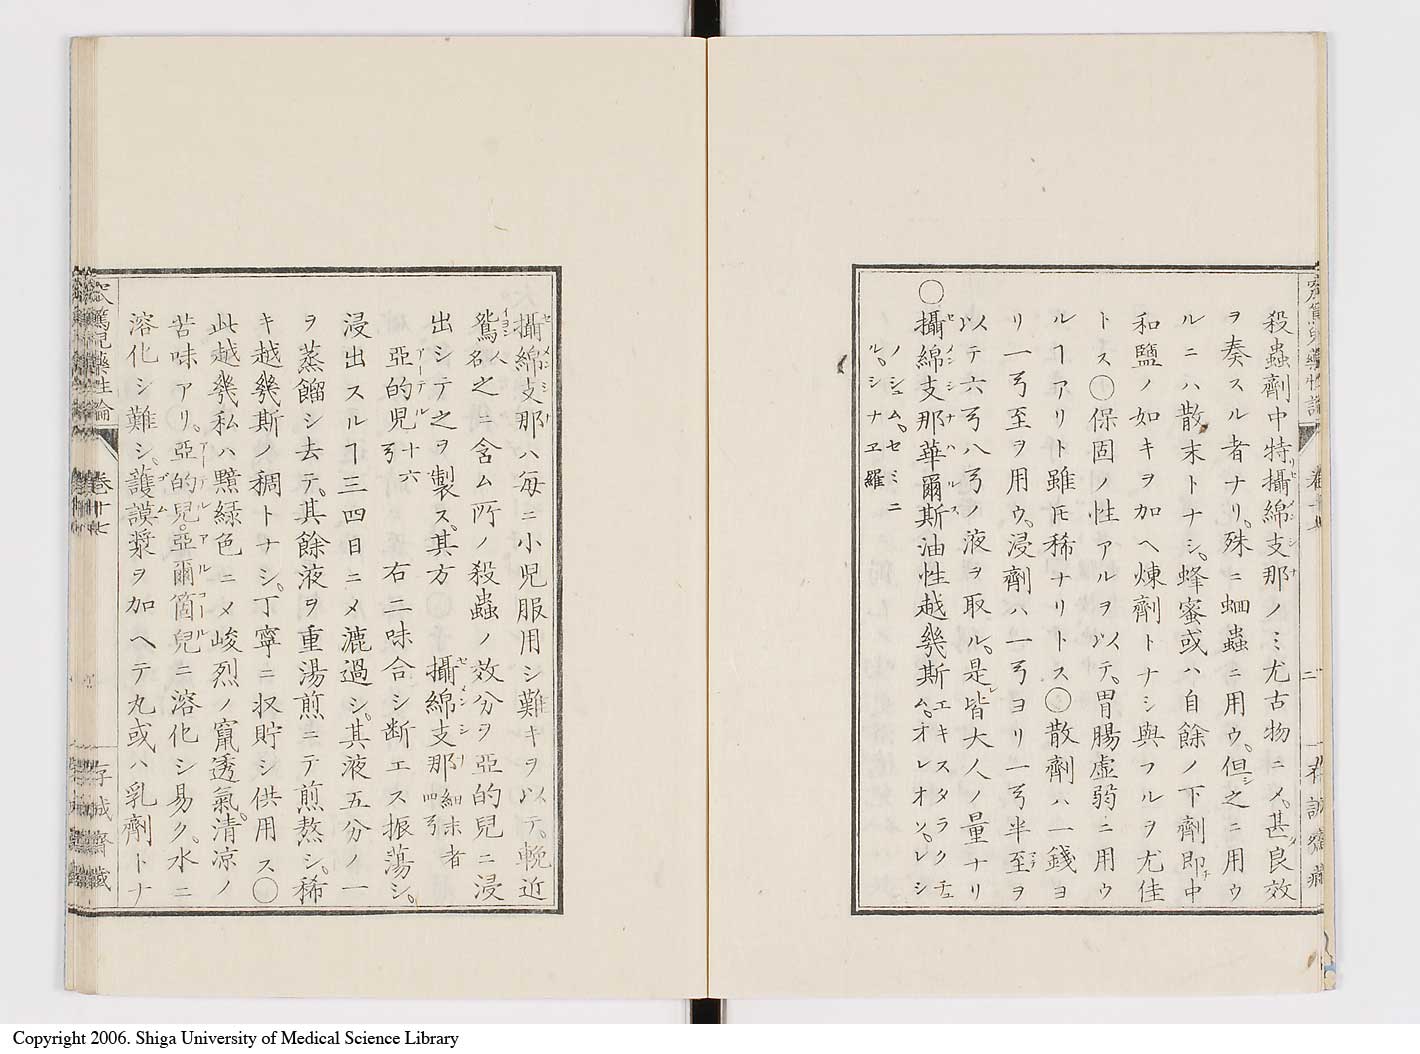 殺蟲劑中特攝綿支那ノミ尤古物ニメ甚良效
ヲ奏スル者ナリ。殊ニ蛔蟲ニ用ウ。但シ之ニ用ウ
ルニハ散末トナシ。蜂蜜或ハ自餘ノ下劑即チ中
和鹽ノ如キヲ加ヘ煉劑トナシ與フルヲ尤佳
トス〇保固ノ性アルヲ以テ。胃腸虚弱ニ用ウ
ルヿアリト雖𪜈稀ナリトス〇散劑ハ一錢ヨ
リ一弓至ヲ用ウ。浸劑ハ一弓ヨリ一弓半至ヲ
以テ六弓八弓ノ液ヲ取ル。是レ皆大人ノ量ナリ
〇攝綿支那華爾斯油性越幾斯エキスタラクチュム。オレオソ。レシ
ノシュム。セミニ
ル。シナヱ 羅
攝綿支那ハ毎ニ小児服用シ難キヲ以テ。輓近
鴛人名之ニ含ム所ノ殺蟲ノ效分ヲ亞的児ニ浸
出シテ之ヲ製ス。其方 攝綿支那細末四弓者
亞的児十六弓 右二味合シ断エス振蕩シ。
浸出スルヿ三四日ニメ漉過シ。其液五分ノ一
ヲ蒸餾シ去テ。其餘液ヲ重湯煎ニテ煎熬シ。稀
キ越幾斯ノ稠トナシ。丁寧ニ収貯シ供用ス〇
此越幾私ハ黯緑色ニメ峻烈ノ竄透氣。清凉ノ
苦味アリ。亞的児。亞爾箇兒ニ溶化シ易ク。水ニ
溶化シ難シ。護謨漿ヲ加ヘテ丸或ハ乳劑トナ
窊篤児藥性論 卷十七 存誠齋藏
Copyright 2006. Shiga University of Medical Science Library